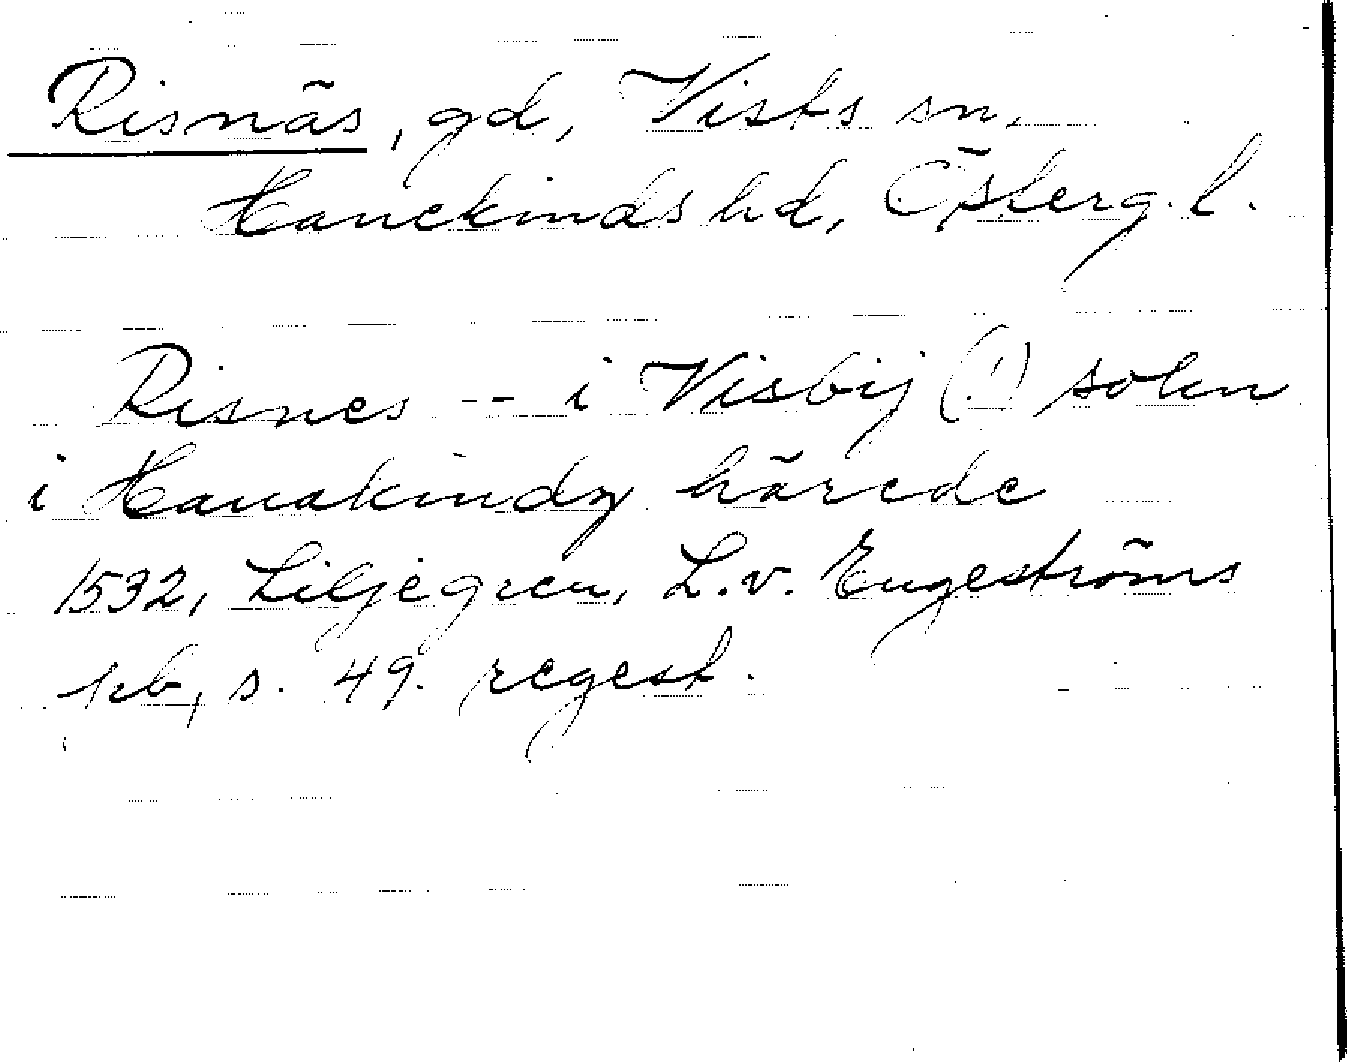 Risnäs, gd, Vists sn,
Hanekinds hd, Österg. l.
Risnes -- i Visbij (!) sokn
i Hanakindz härede
1532, Liljegren, L. v. Engeströms
kb, s. 49. regest.